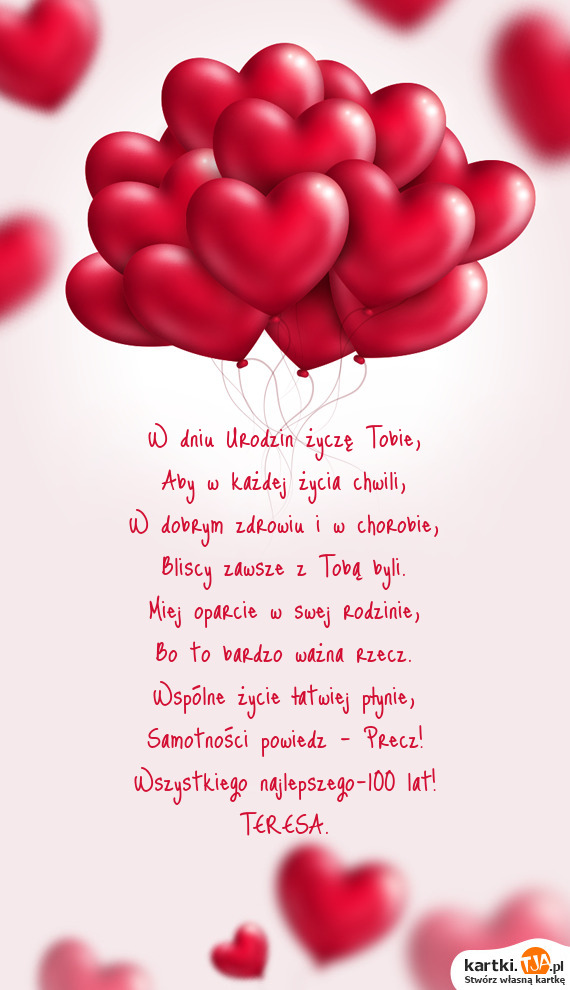 W dniu Urodzin życzę Tobie,
Aby w każdej życia chwili,
W dobrym zdrowiu i w chorobie,
Bliscy zawsze z Tobą byli.
Miej oparcie w swej rodzinie,
Bo to bardzo ważna rzecz.
Wspólne życie łatwiej płynie,
Samotności powiedz - Precz!
Wszystkiego najlepszego-100 lat!
TERESA.
kartki.TJA.pl
Stwórz własną kartkę